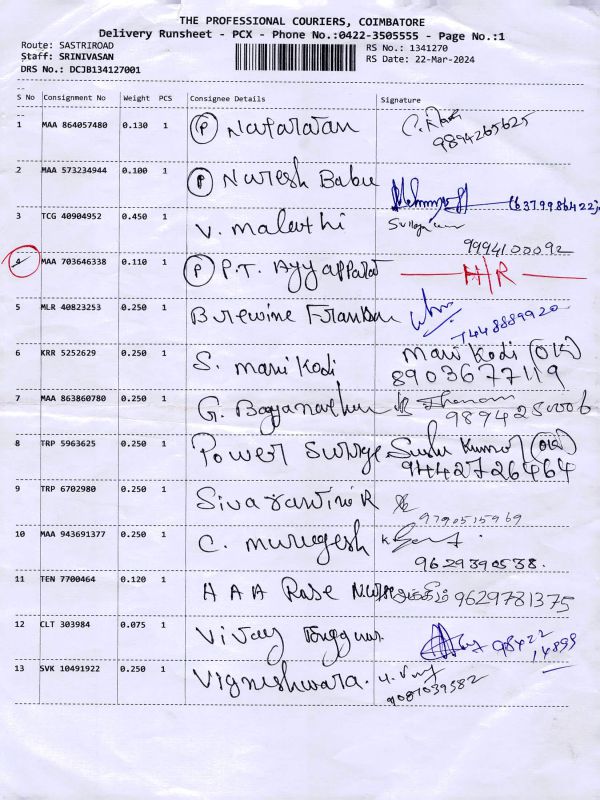 THE PROFESSIONAL COURIERS, COIMBATORE
Delivery Runsheet - PCX - Phone No.:0422-3505555 - Page No.:1
Route: SASTRIROAD RS No.: 1341270
Staff: SRINIVASAN RS Date: 22-Mar-2024
DRS No.: DCJB134127001
S No Consignment No Weight PCS Consignee Details Signature
1 MAA 864057480 0.130 1 (P) Natarajan
9894265625
2 MAA 573234944 0.100 1 (P) Naresh Babu (6379986422)
3 TCG 40904952 0.450 1 V. Malathi
9994100092
4 MAA 703646338 0.110 1 (P) P.T. Ayyappan H/R
5 MLR 40823253 0.250 1
7448889920
6 KRR 5252629 0.250 1 S. Manikodi Manikodi
8903677119
7 MAA 863860780 0.250 1 G.
9894250006
8 TRP 5963625 0.250 1 Power Surge Kumar
9442726464
9 TRP 6702980 0.250 1
9790515969
10 MAA 943691377 0.250 1 C. Murugesh
9629390538.
11 TEN 7700464 0.120 1 A A A Rose 9629781375
12 CLT 303984 0.075 1 Vijay 98422
14899
13 SVK 10491922 0.250 1 Vigneshwara.
9087039582